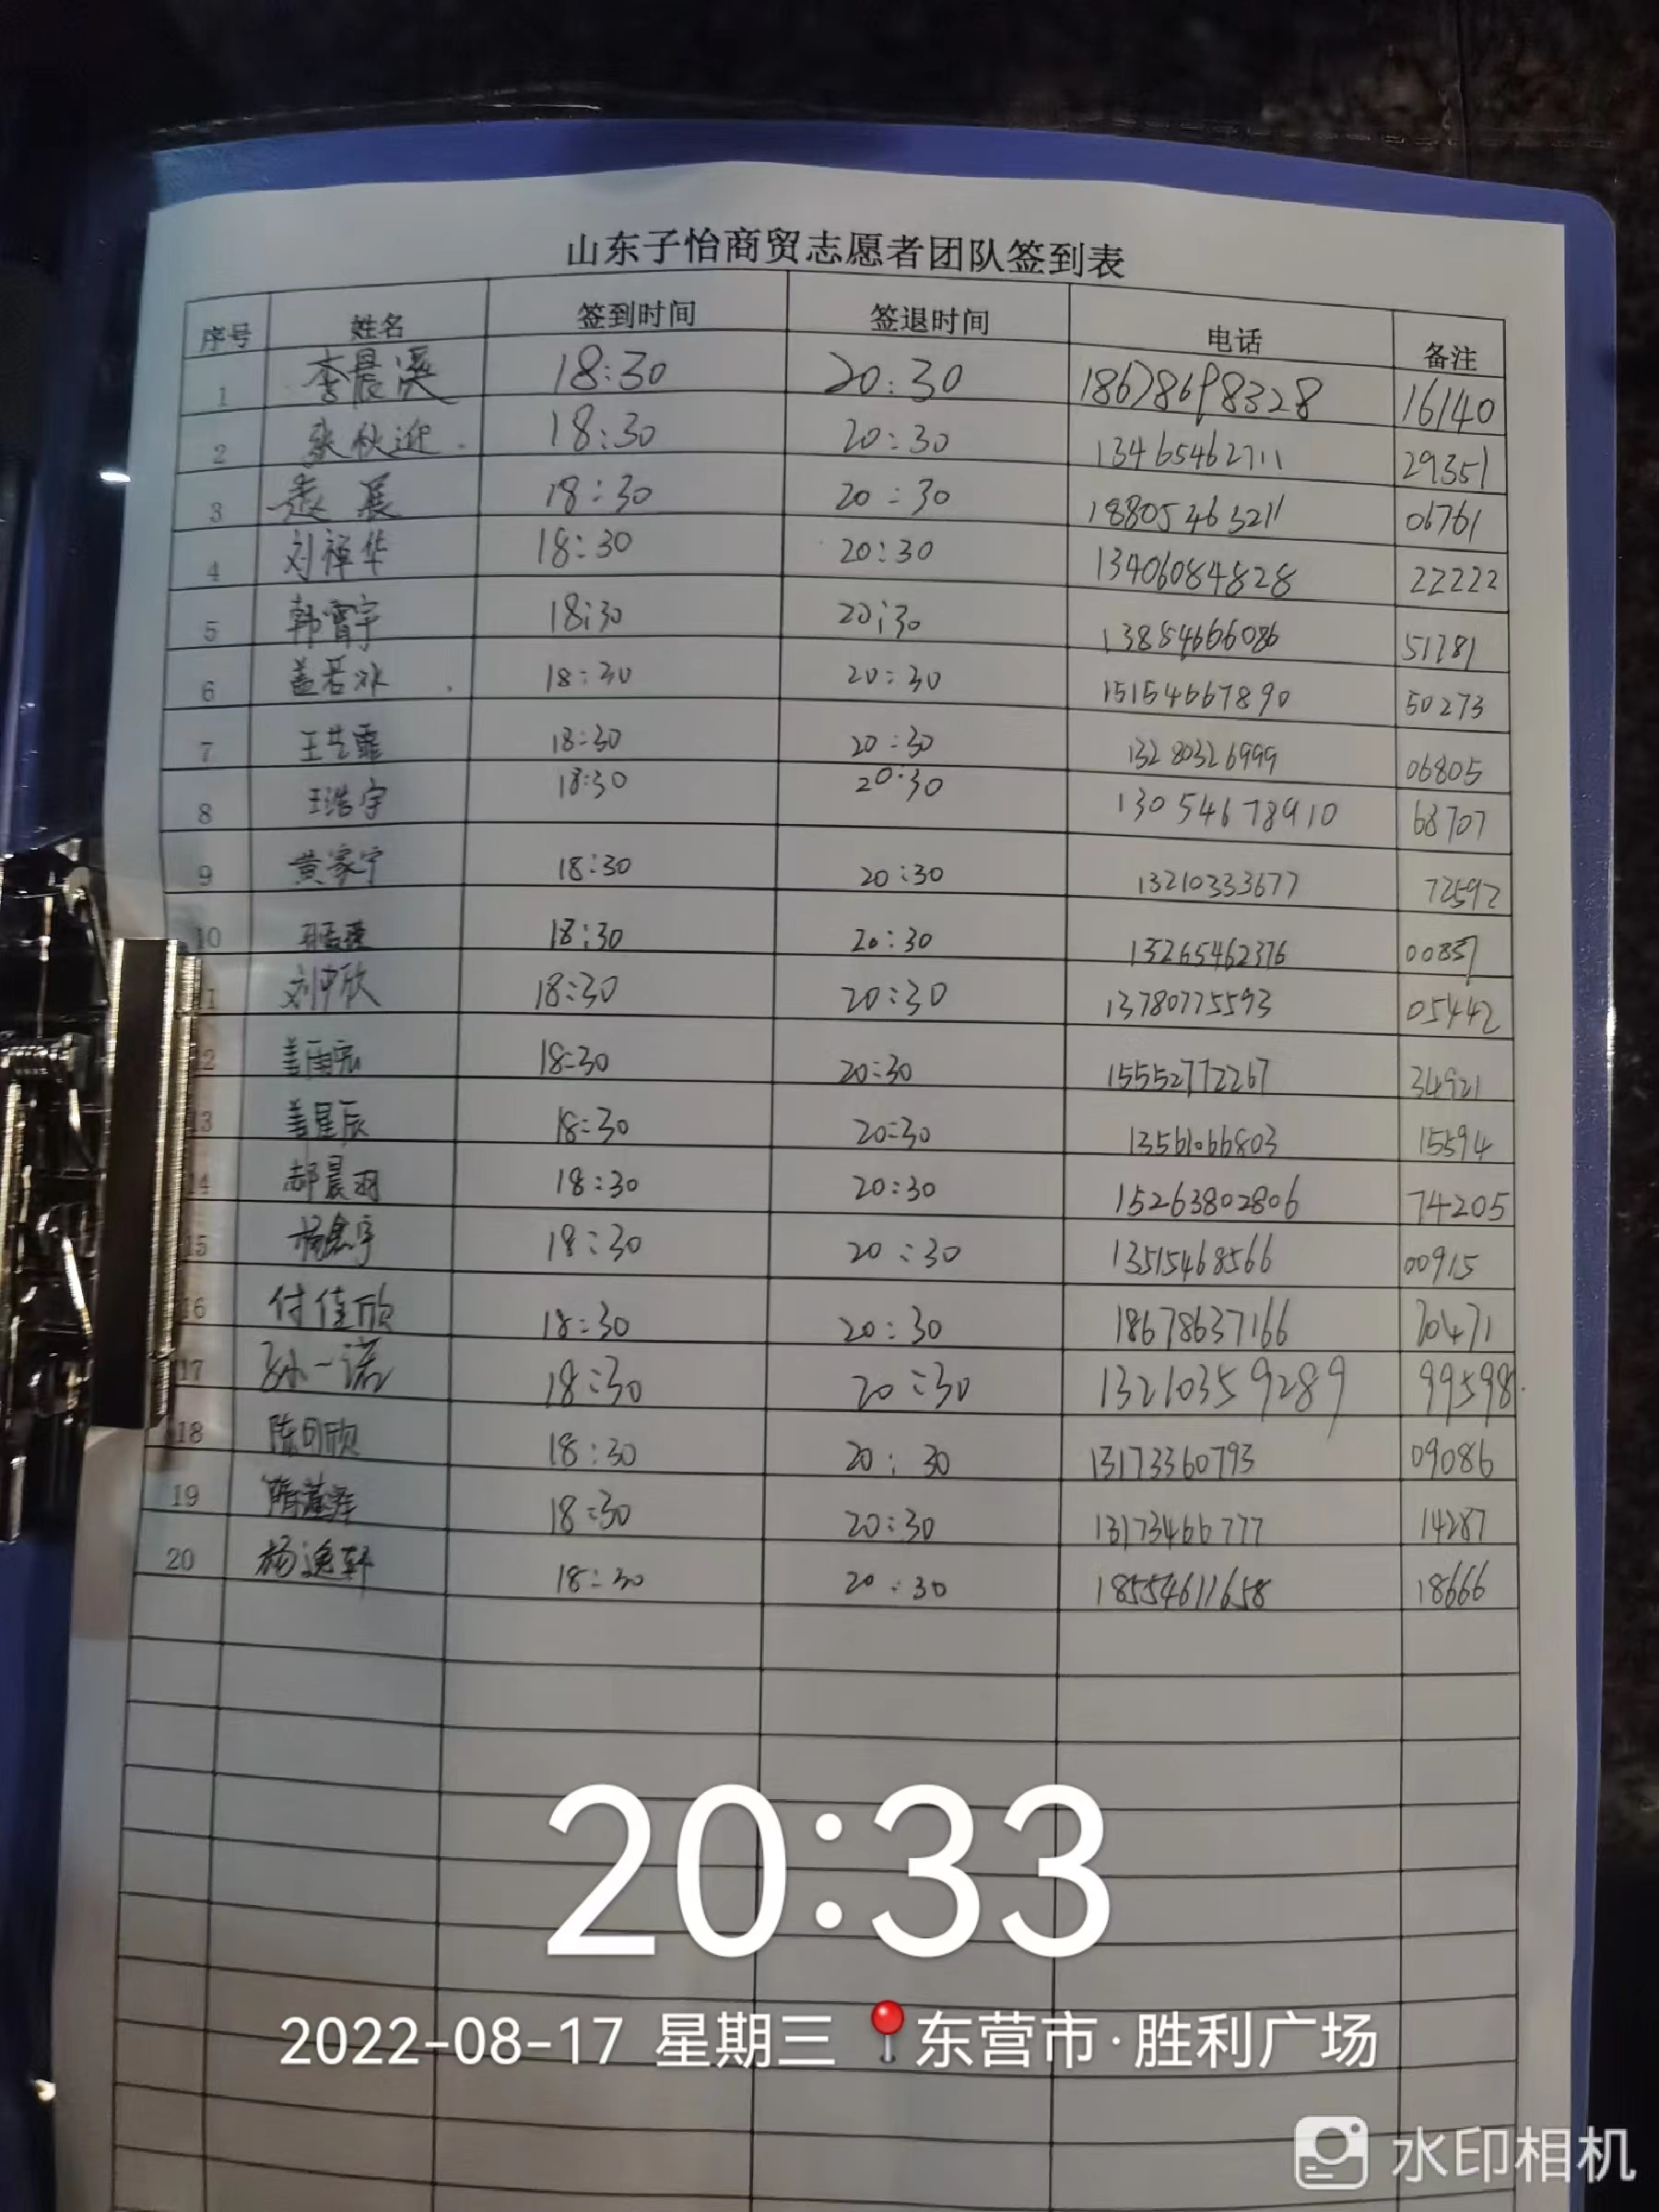 山东子怡商贸志愿者团队签到表
序号 姓名 签到时间 签退时间 电话 备注
1 李晨溪 18:30 20:30 18678698328 16140
2 张秋迎 18:30 20:30 13465462711 29351
3 展 18:30 20:30 18805463211 06761
4 刘禅华 18:30 20:30 13406084828 22222
5 韩霄宇 18:30 20:30 13854666086 51281
6 盖若冰 18:30 20:30 15154667890 50273
7 王艺霏 18:30 20:30 13280326999 06805
8 王浩宇 18:30 20:30 13054678910 68707
9 黄家宁 18:30 20:30 13210333677 72592
10 18:30 20:30 13265462376 00857
11 刘中欣 18:30 20:30 13780775593 05442
12 盖雨宏 18:30 20:30 15552772267 34921
13 盖星辰 18:30 20:30 13561066803 15594
14 郝晨羽 18:30 20:30 15263802806 74205
15 杨宇 18:30 20:30 13515468566 00915
16 付佳欣 18:30 20:30 18678637166 20471
17 孙一诺 18:30 20:30 13210359289 99598
18 陈可欣 18:30 20:30 13173360793 09086
19 隋 18:30 20:30 13173466777 14287
20 杨逸轩 18:30 20:30 18554611658 18666
20:33
2022-08-17 星期三 东营市·胜利广场
水印相机